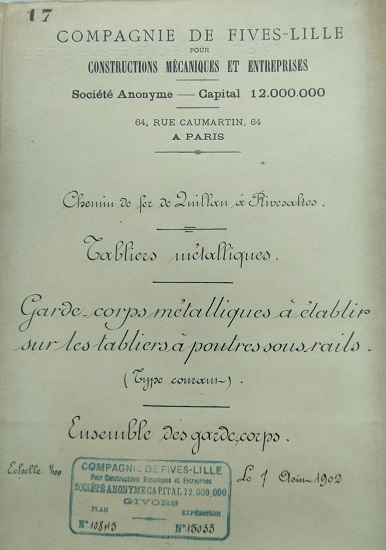 17
COMPAGNIE DE FIVES-LILLE
POUR
CONSTRUCTIONS MÉCANIQUES ET ENTREPRISES
Société Anonyme — Capital 12.000.000
64, RUE CAUMARTIN, 64
A PARIS
Chemin de fer de Quillan à Rivesaltes.
Tabliers métalliques.
Garde-corps métalliques à établir
sur les tabliers à poutres sous rails.
(Type courant).
Ensemble des garde-corps.
Echelle:
Le 7 Août 1902
COMPAGNIE DE FIVES-LILLE
Pour Constructions Mécaniques et Entreprises
SOCIÉTÉ ANONYME CAPITAL 12.000,000
GIVORS
PLAN EXPÉDITION
N° N° 15033